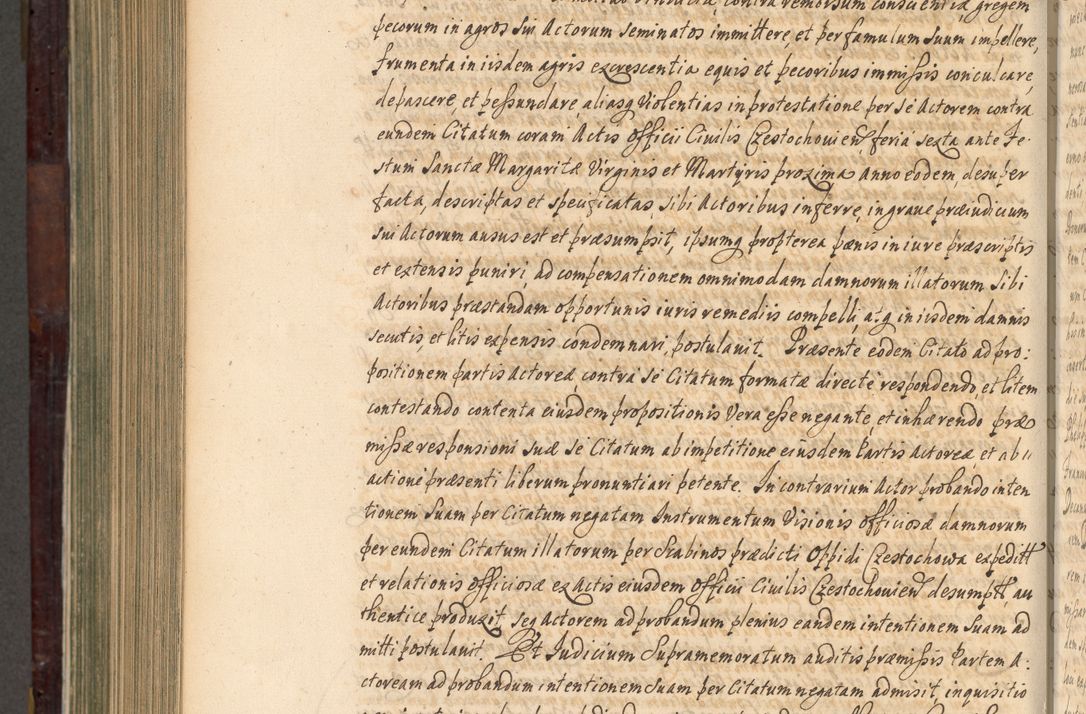 contra remorsum conscientiæ, gregem
pecorum in agros sui Actorum seminatos immittere, et per famulum suum impellere,
frumenta in iisdem agris excrescentia equis et pecoribus immissis conculcare,
depascere, et pessundare, aliasq violentias in protestatione per se Actorem contra
eundem Citatum coram Actis Officii Civilis Czestochovien, feria sexta ante Fe-
stum Sanctæ Margaritæ Virginis et Martyris proxima anno eodem, desuper
facta, descriptas et specificatas, sibi Actoribus inferre, in grave præiudicium
sui Actorum ausus est et præsumpsit, ipsumq propterea pænis in iure præscriptis
et extensis puniri, ad compensationem omnimodam damnorum illatorum sibi
Actoribus præstandam opportunis iuris remediis compelli, atq in iisdem damnis
secutis, et litis expensis condemnari, postulavit. Præsente eodem Citato ad pro:
positionem partis Actoreæ contra se Citatum formatæ directe respondendo, et litem
contestando contenta eiusdem propositionis vera esse negante, et inhærendo præ
missæ responsioni suæ se Citatum ab impetitione eiusdem Partis Actoreæ, et ab
actione præsenti liberum pronuntiari petente. In contrarium Actor probando inten
tionem suam per Citatum negatam Instrumentum Visionis officiosæ damnorum
per eundem Citatum illatorum per Scabinos prædicti Oppidi Czestochowa expeditt
et relationis officiosæ ex Actis eiusdem Officii Civilis Czestochovien desumptt, au
thentice produxit, seq Actorem ad probandum plenius eandem intentionem suam ad
mitti postulavit. Et Judicium Supramemoratum auditis præmissis Partem A-
ctoream ad probandum intentionem suam per Citatum negatam admisit, inquisitio